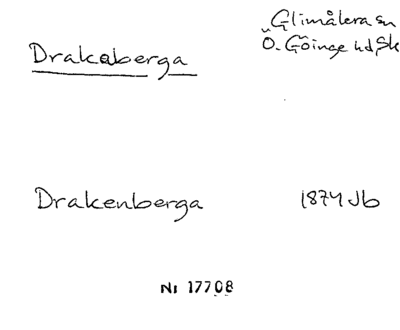 Drakaberga
Glimåkra sn
Ö. Göinge hd, Sk
Drakenberga 1874 Jb
Nr 17708